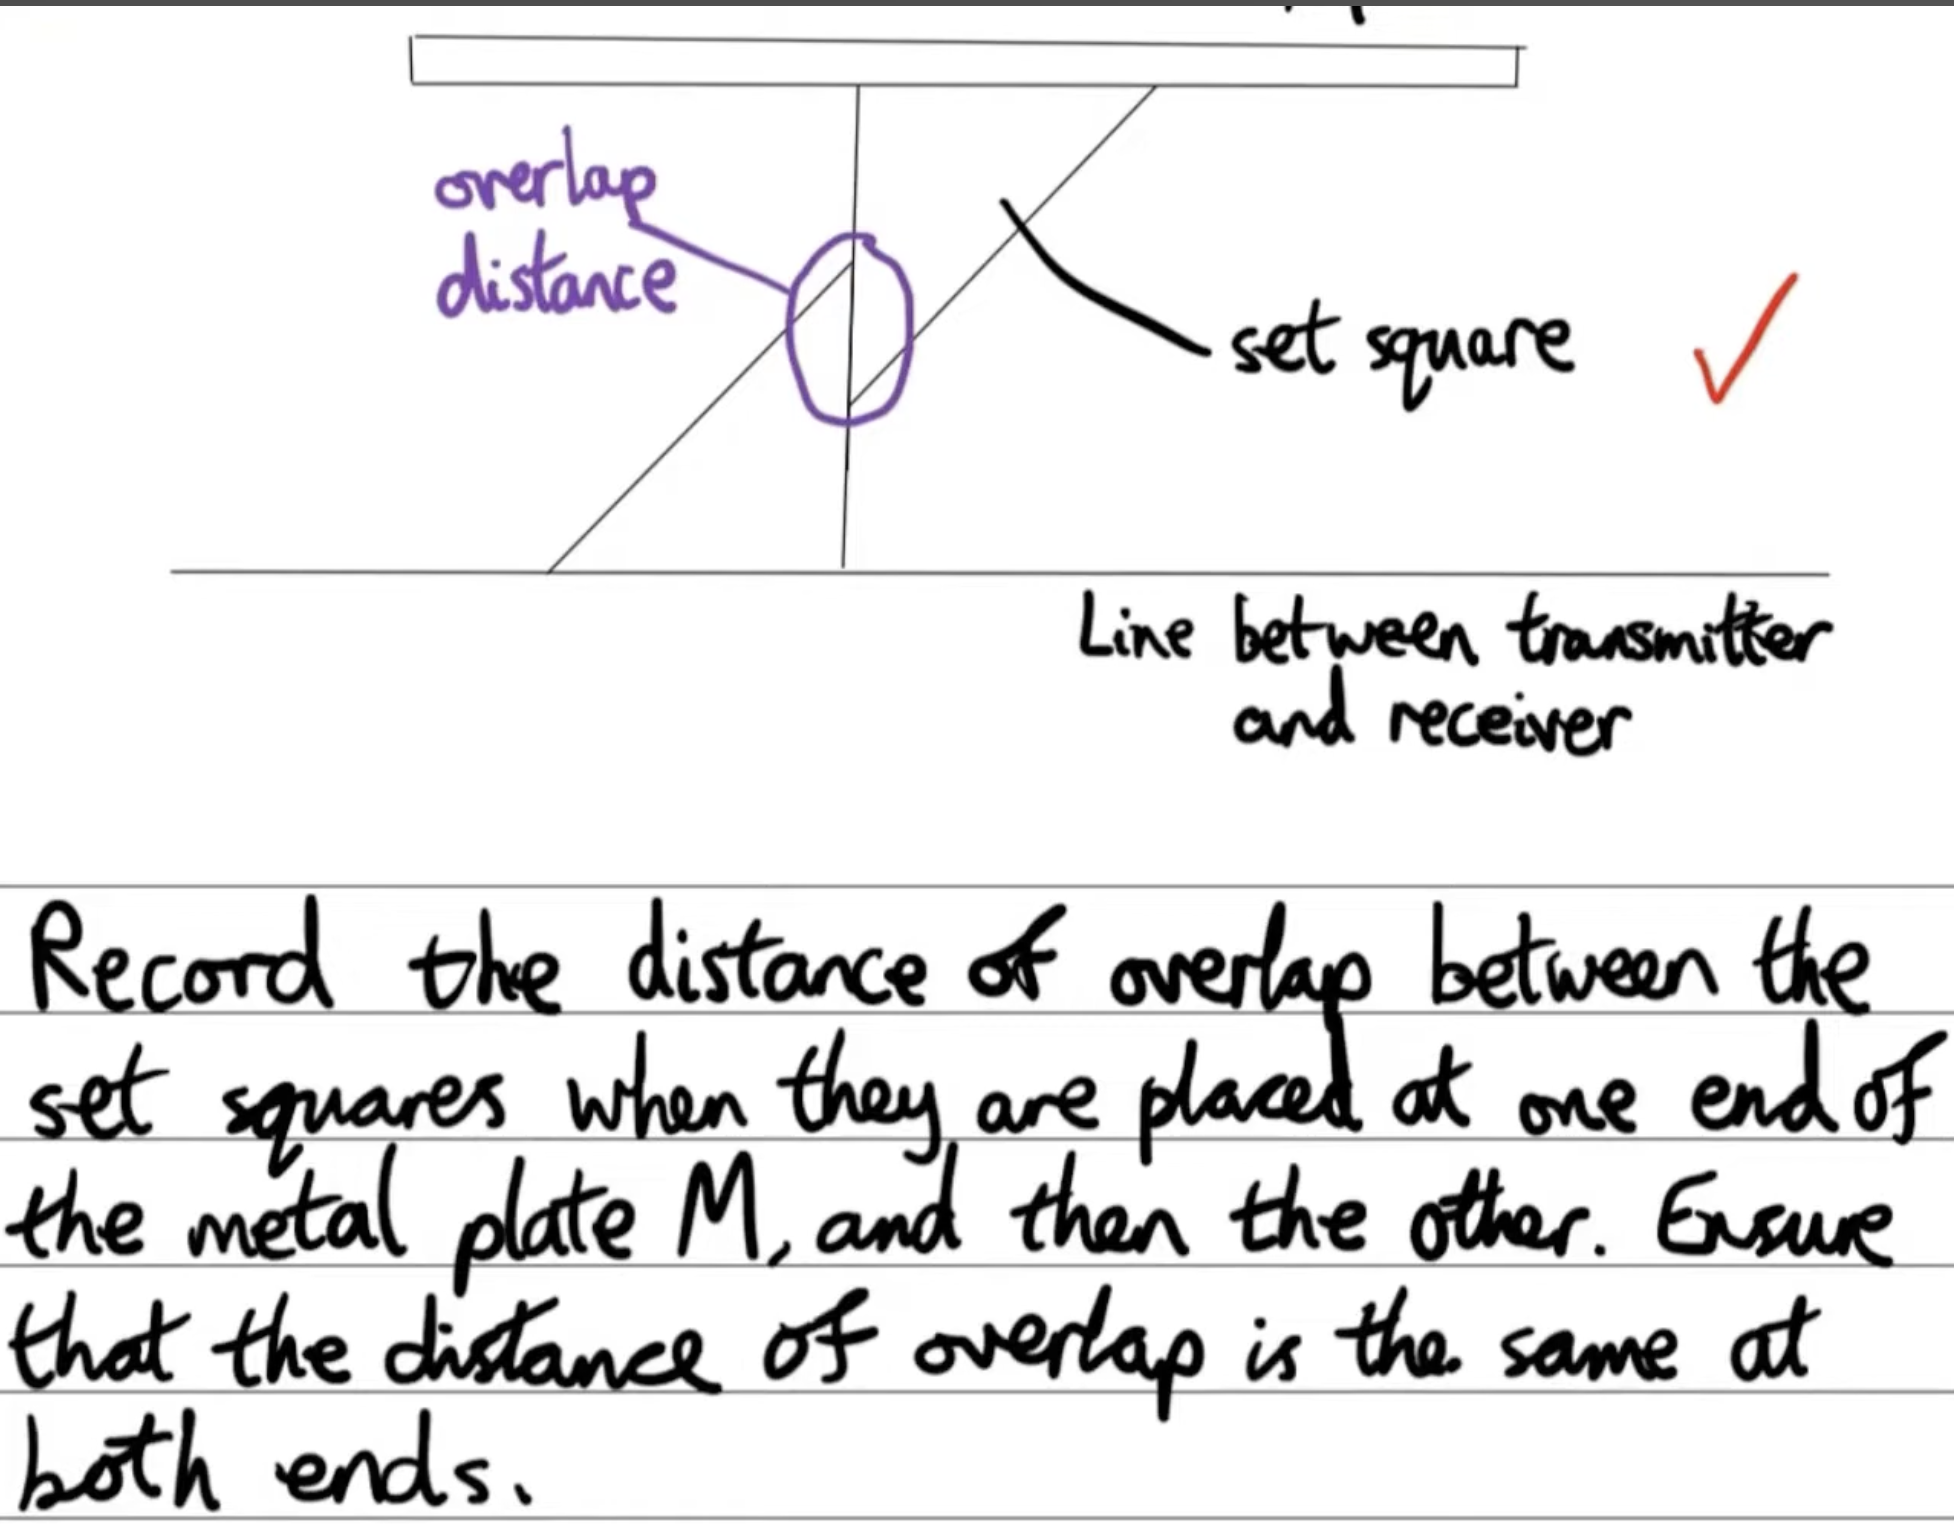 overlap
distance
set square
Line between transmitter
and receiver
Record the distance of overlap between the
set squares when they are placed at one end of
the metal plate M, and then the other. Ensure
that the distance of overlap is the same at
both ends.